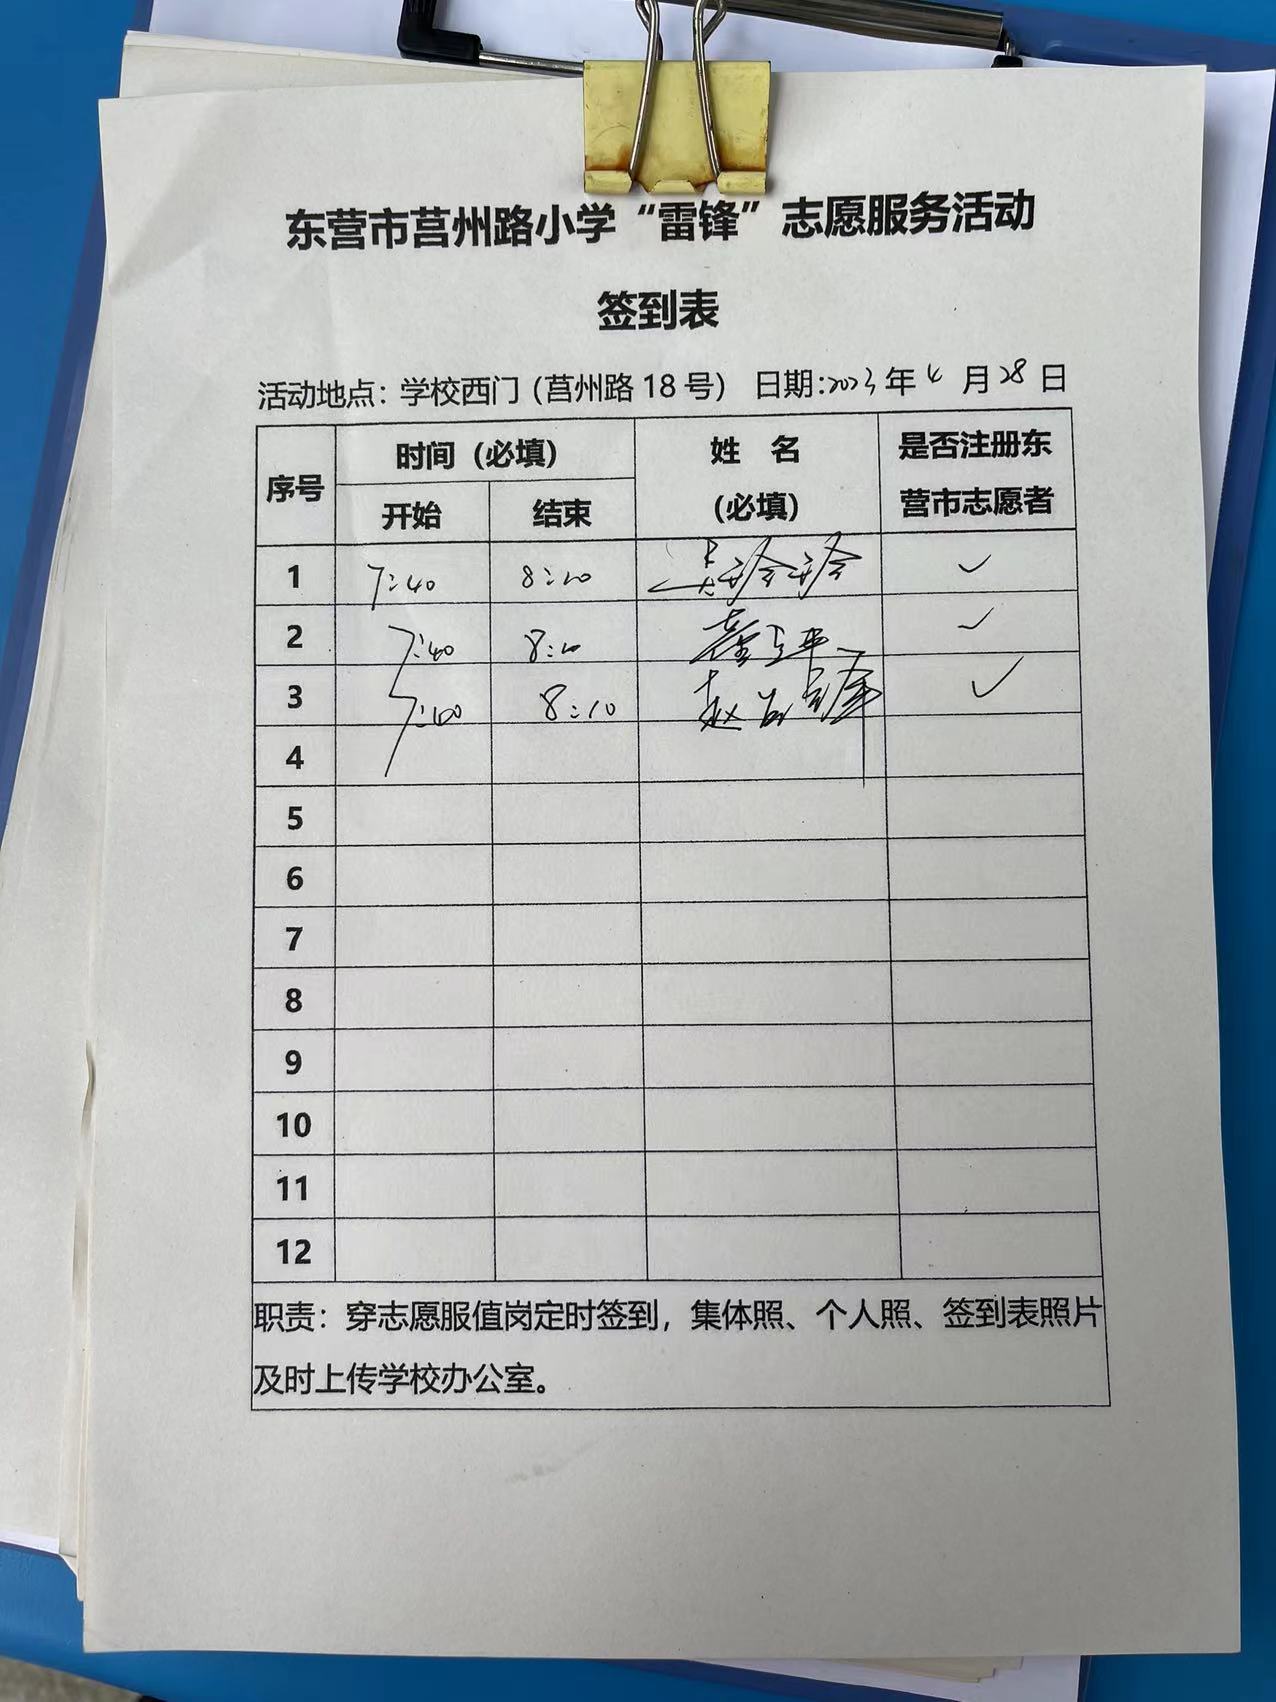 东营市莒州路小学“雷锋”志愿服务活动
签到表
活动地点：学校西门（莒州路 18 号） 日期：2023 年 4 月 28 日
序号 时间（必填） 姓 名 是否注册东
开始 结束 （必填） 营市志愿者
1 7:40 8:10 ✓
2 7:40 8:10 ✓
3 7:40 8:10 赵 ✓
4
5
6
7
8
9
10
11
12
职责：穿志愿服值岗定时签到，集体照、个人照、签到表照片
及时上传学校办公室。